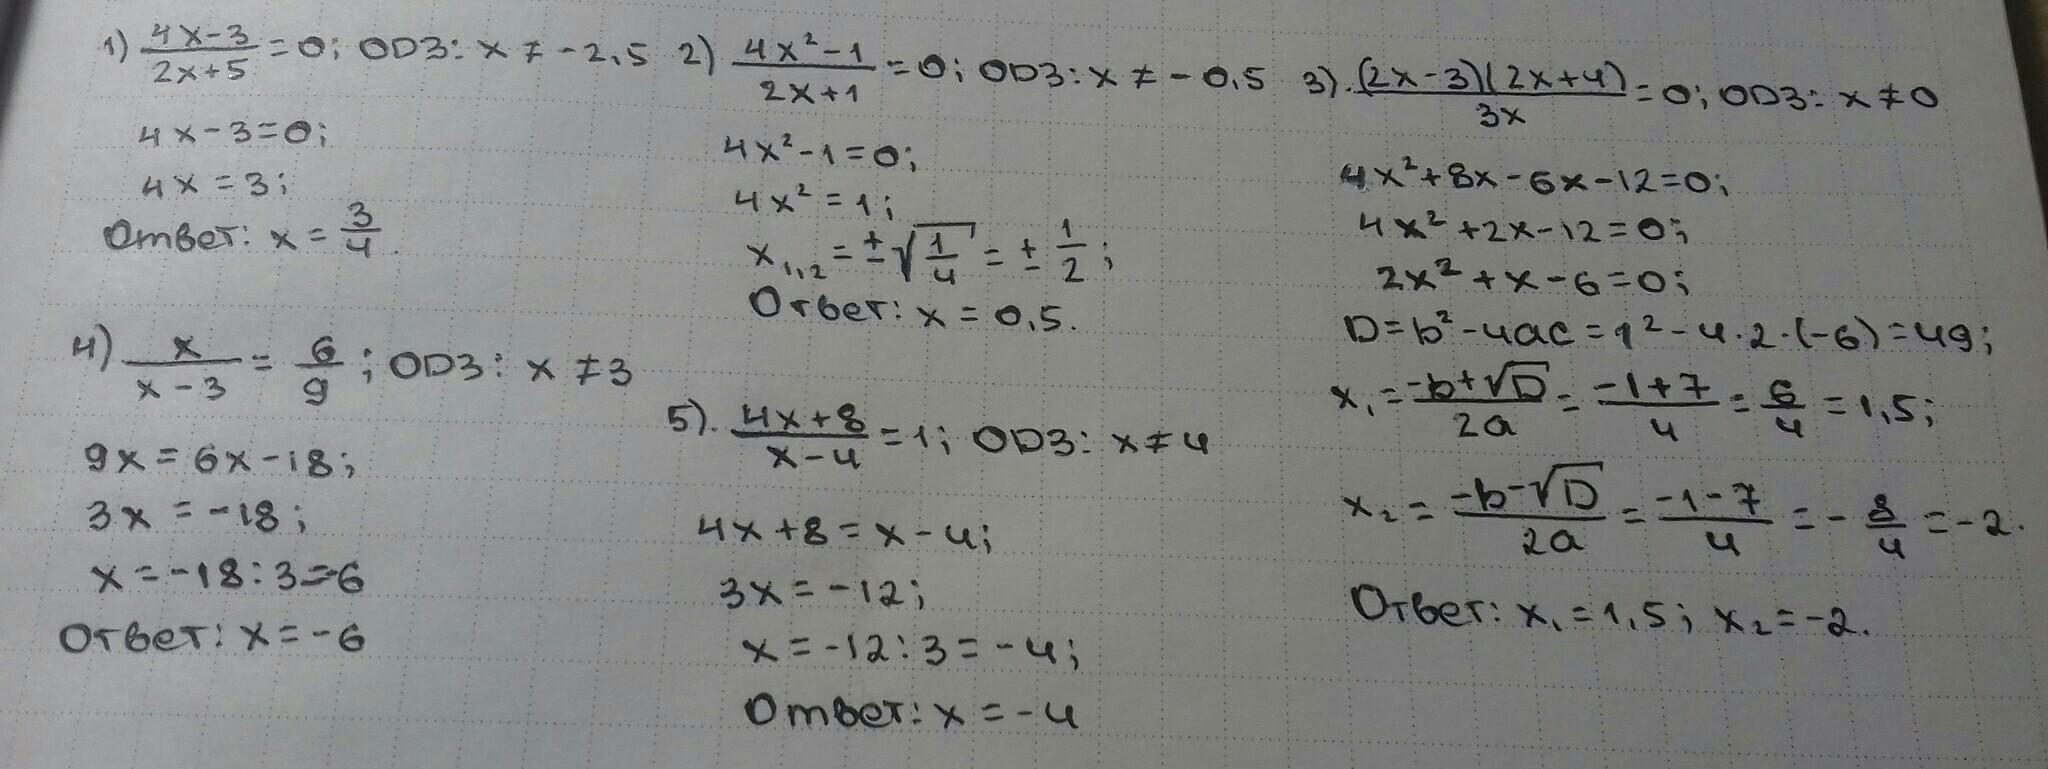 1) (4x-3)/(2x+5) = 0; ОДЗ: x ≠ -2,5
4x-3=0;
4x=3;
Ответ: x = 3/4.
2) (4x²-1)/(2x+1) = 0; ОДЗ: x ≠ -0,5
4x²-1=0;
4x²=1;
x₁,₂ = ±√(1/4) = ± 1/2;
Ответ: x = 0,5.
3). (2x-3)(2x+4)/3x = 0; ОДЗ: x ≠ 0
4x²+8x-6x-12=0;
4x²+2x-12=0;
2x²+x-6=0;
D=b²-4ac=1²-4·2·(-6)=49;
x₁ = (-b+√D)/2a = (-1+7)/4 = 6/4 = 1,5;
x₂ = (-b-√D)/2a = (-1-7)/4 = -8/4 = -2.
Ответ: x₁=1,5; x₂=-2.
4) x/(x-3) = 6/9; ОДЗ: x ≠ 3
9x=6x-18;
3x=-18;
x=-18:3=-6
Ответ: x=-6
5). (4x+8)/(x-4) = 1; ОДЗ: x ≠ 4
4x+8=x-4;
3x=-12;
x=-12:3=-4;
Ответ: x=-4